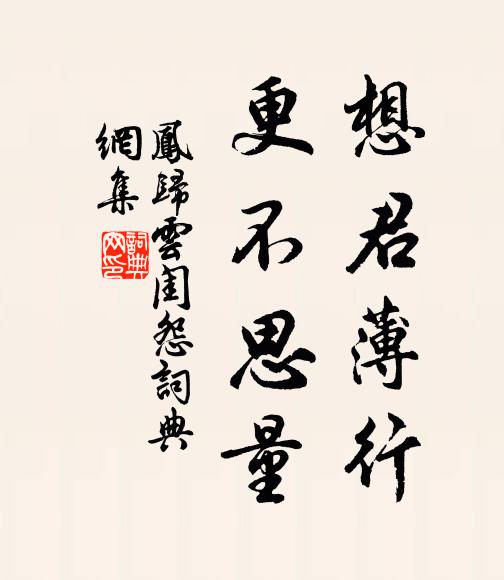 想君薄行
更不思量
鳳歸雲閨怨詞典
網集
詞典
網印